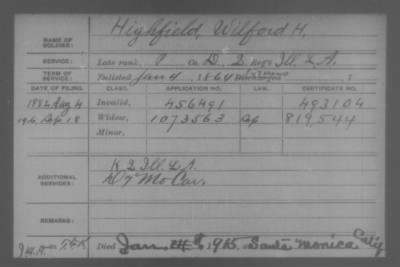 NAME OF SOLDIER: Highfield, Wilford H.
SERVICE: Late rank, P Co. D, 2 Reg't Ill. L. A.
TERM OF SERVICE: Enlisted Jan 4, 1864
DATE OF FILING. CLASS. APPLICATION NO. LAW. CERTIFICATE NO.
1882 Aug 4 Invalid, 456491 493104
18 Widow, 1073563 819,544
Minor,
ADDITIONAL SERVICES: K 2 Ill. L. A.
7 Mo Cav.
REMARKS:
Died Jan. 1915, Santa Monica